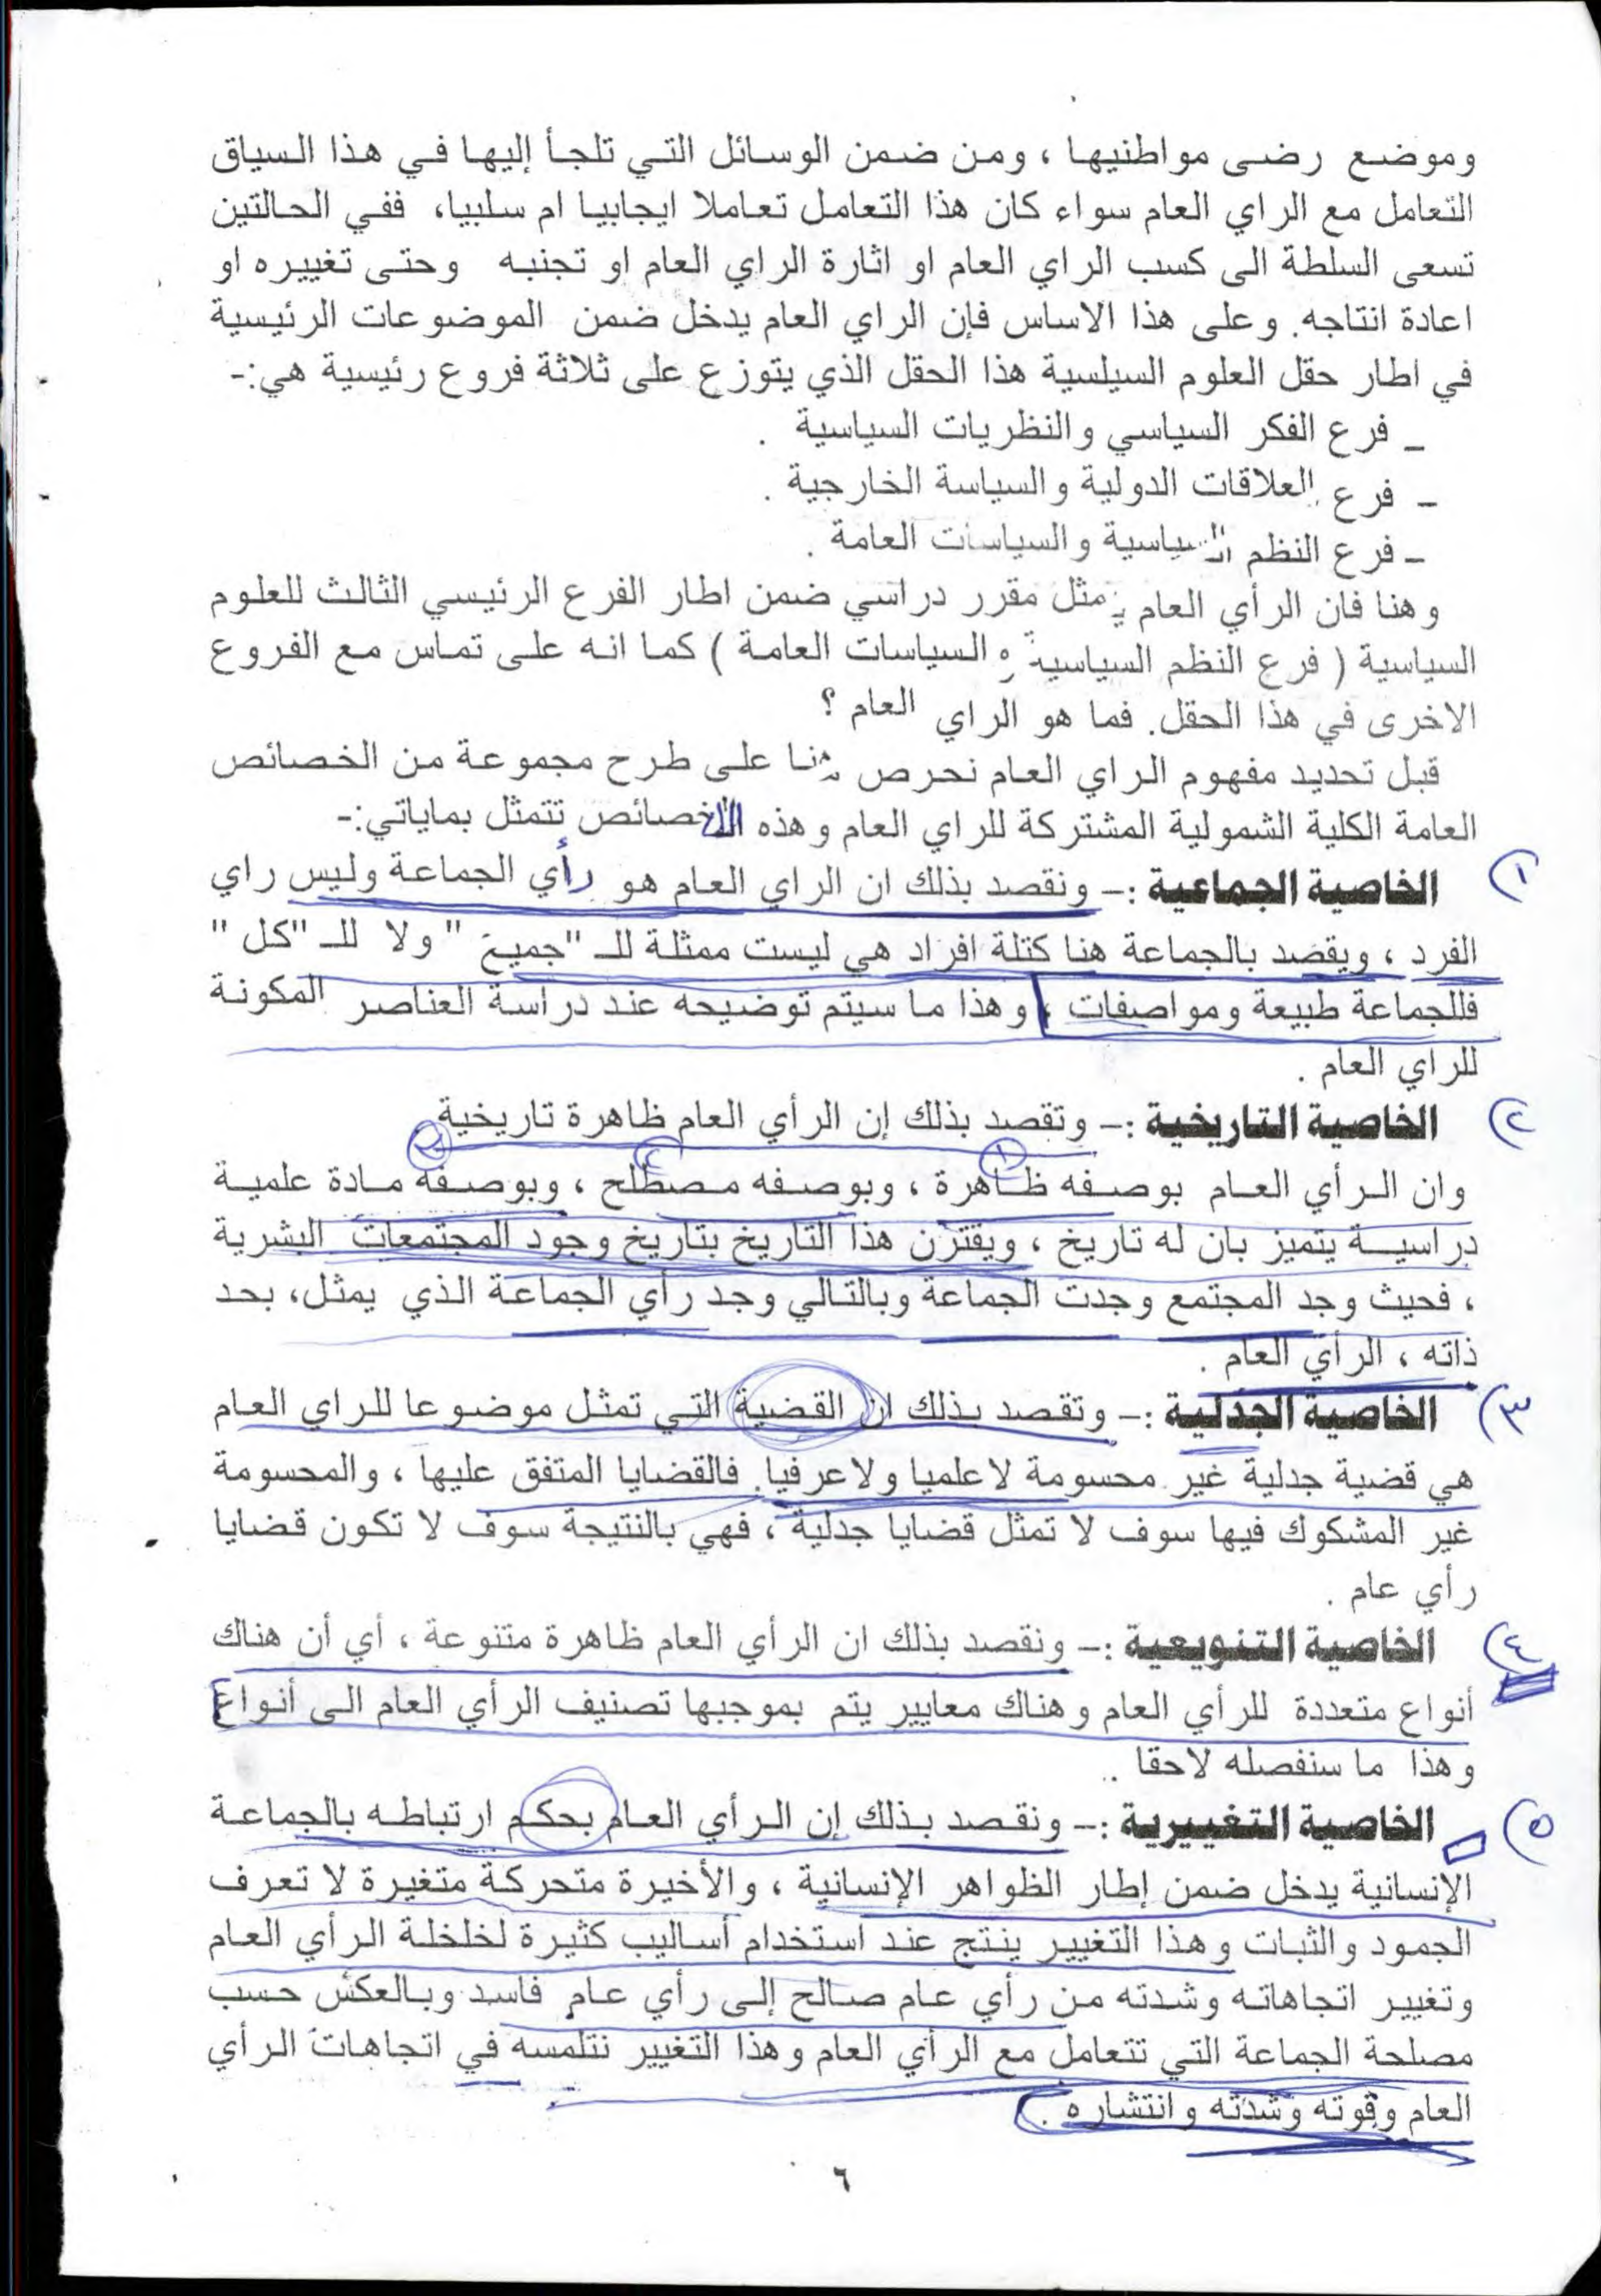 وموضع رضى مواطنيها ، ومن ضمن الوسائل التي تلجأ إليها في هذا السياق
التعامل مع الراي العام سواء كان هذا التعامل تعاملا ايجابيا ام سلبيا، ففي الحالتين
تسعى السلطة الى كسب الراي العام او اثارة الراي العام او تجنبه وحتى تغييره او
اعادة انتاجه. وعلى هذا الاساس فإن الراي العام يدخل ضمن الموضوعات الرئيسية
في اطار حقل العلوم السيلسية هذا الحقل الذي يتوزع على ثلاثة فروع رئيسية هي:-
_ فرع الفكر السياسي والنظريات السياسية .
- فرع العلاقات الدولية والسياسة الخارجية .
- فرع النظم السياسية والسياسات العامة .
وهنا فان الرأي العام يمثل مقرر دراسي ضمن اطار الفرع الرئيسي الثالث للعلوم
السياسية ( فرع النظم السياسية والسياسات العامة ) كما انه على تماس مع الفروع
الاخرى في هذا الحقل. فما هو الراي العام ؟
قبل تحديد مفهوم الراي العام نحرص هنا على طرح مجموعة من الخصائص
العامة الكلية الشمولية المشتركة للراي العام وهذه الخصائص تتمثل بماياتي:-
١) الخاصية الجماعية :- ونقصد بذلك ان الراي العام هو رأي الجماعة وليس راي
الفرد ، ويقصد بالجماعة هنا كتلة افراد هي ليست ممثلة للـ "جميع " ولا للـ "كل "
فللجماعة طبيعة ومواصفات ، وهذا ما سيتم توضيحه عند دراسة العناصر المكونة
للراي العام .
٢) الخاصية التاريخية :- وتقصد بذلك إن الرأي العام ظاهرة تاريخية
١ ٢ ٣
وان الرأي العام بوصفه ظاهرة ، وبوصفه مصطلح ، وبوصفه مادة علمية
دراسية يتميز بان له تاريخ ، ويقترن هذا التاريخ بتاريخ وجود المجتمعات البشرية
، فحيث وجد المجتمع وجدت الجماعة وبالتالي وجد رأي الجماعة الذي يمثل، بحد
ذاته ، الرأي العام .
٣) الخاصية الجدلية :- وتقصد بذلك ان القضية التي تمثل موضوعا للراي العام
هي قضية جدلية غير محسومة لاعلميا ولاعرفيا. فالقضايا المتفق عليها ، والمحسومة
غير المشكوك فيها سوف لا تمثل قضايا جدلية ، فهي بالنتيجة سوف لا تكون قضايا
رأي عام .
٤) الخاصية التنويعية :- ونقصد بذلك ان الرأي العام ظاهرة متنوعة ، أي أن هناك
أنواع متعددة للرأي العام وهناك معايير يتم بموجبها تصنيف الرأي العام الى أنواع
وهذا ما سنفصله لاحقا ..
٥) الخاصية التغييرية :- ونقصد بذلك إن الرأي العام بحكم ارتباطه بالجماعة
الإنسانية يدخل ضمن إطار الظواهر الإنسانية ، والأخيرة متحركة متغيرة لا تعرف
الجمود والثبات وهذا التغيير ينتج عند استخدام أساليب كثيرة لخلخلة الرأي العام
وتغيير اتجاهاته وشدته من رأي عام صالح إلى رأي عام فاسد وبالعكس حسب
مصلحة الجماعة التي تتعامل مع الرأي العام وهذا التغيير نتلمسه في اتجاهات الرأي
العام وقوته وشدته وانتشاره .
٦